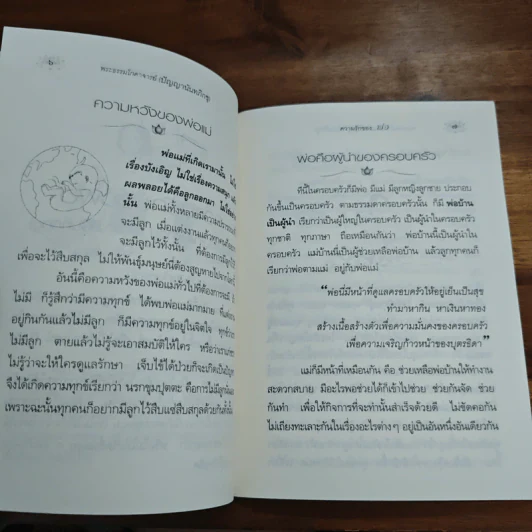 ๖
พระธรรมโกศาจารย์ (ปัญญานันทภิกขุ)
ความหวังของพ่อแม่
พ่อแม่ที่เกิดเรามานั้น
เรื่องบังเอิญ ไม่ใช่เรื่องความสนุก
ผลพลอยได้คือลูกออกมา
นั้น พ่อแม่ทั้งหลายมีความปรารถนา
จะมีลูก เมื่อแต่งงานแล้วทุกคนก็อยาก
จะมีลูกไว้ทั้งนั้น ที่ต้องการมีลูกก็
เพื่อจะไว้สืบสกุล ไม่ให้พันธุ์มนุษย์นี้ต้องสูญหายไปจากโลก
อันนี้คือความหวังของพ่อแม่ทั่วไปที่ต้องการจะมี
ไม่มี ก็รู้สึกว่ามีความทุกข์ ได้พบพ่อแม่มากมาย ที่แต่ง
อยู่กินกันแล้วไม่มีลูก ก็มีความทุกข์อยู่ในจิตใจ ทุกข์
ไม่มีลูก ตายแล้วไม่รู้จะเอาสมบัติให้ใคร หรือว่าเราแก่
ไม่รู้ว่าจะให้ใครดูแลรักษา เจ็บไข้ได้ป่วยก็จะเป็น
จึงได้เกิดความทุกข์เรียกว่า นรกขุมปุตตะ คือการไม่มีลูก
เพราะฉะนั้นทุกคนก็อยากมีลูกไว้สืบแซ่สืบสกุลด้วยกันทั้งนั้น
ความรักของ
๗
พ่อคือผู้นำของครอบครัว
ทีนี้ในครอบครัวก็มีพ่อ มีแม่ มีลูกหญิงลูกชาย ประกอบ
กันขึ้นเป็นครอบครัว ตามธรรมดาครอบครัวนั้น ก็มี พ่อบ้าน
เป็นผู้นำ เรียกว่าเป็นผู้ใหญ่ในครอบครัว เป็นผู้นำในครอบครัว
ทุกชาติ ทุกภาษา ถือเหมือนกันว่า พ่อบ้านนี้เป็นผู้นำใน
ครอบครัว แม่บ้านนี้เป็นผู้ช่วยเหลือพ่อบ้าน แล้วลูกทุกคนก็
เรียกว่าพ่อตามแม่ อยู่กับพ่อแม่
“พ่อนี่มีหน้าที่ดูแลครอบครัวให้อยู่เย็นเป็นสุข
ทำมาหากิน หาเงินหาทอง
สร้างเนื้อสร้างตัวเพื่อความมั่นคงของครอบครัว
เพื่อความเจริญก้าวหน้าของบุตรธิดา”
แม่ก็มีหน้าที่เหมือนกัน คือ ช่วยเหลือพ่อบ้านให้ทำงาน
สะดวกสบาย มีอะไรพอช่วยได้ก็เข้าไปช่วย ช่วยกันจัด ช่วย
กันทำ เพื่อให้กิจการที่จะทำนั้นสำเร็จด้วยดี ไม่ขัดคอกัน
ไม่เถียงทะเลาะกันในเรื่องอะไรต่างๆ อยู่เป็นอันหนึ่งอันเดียวกัน